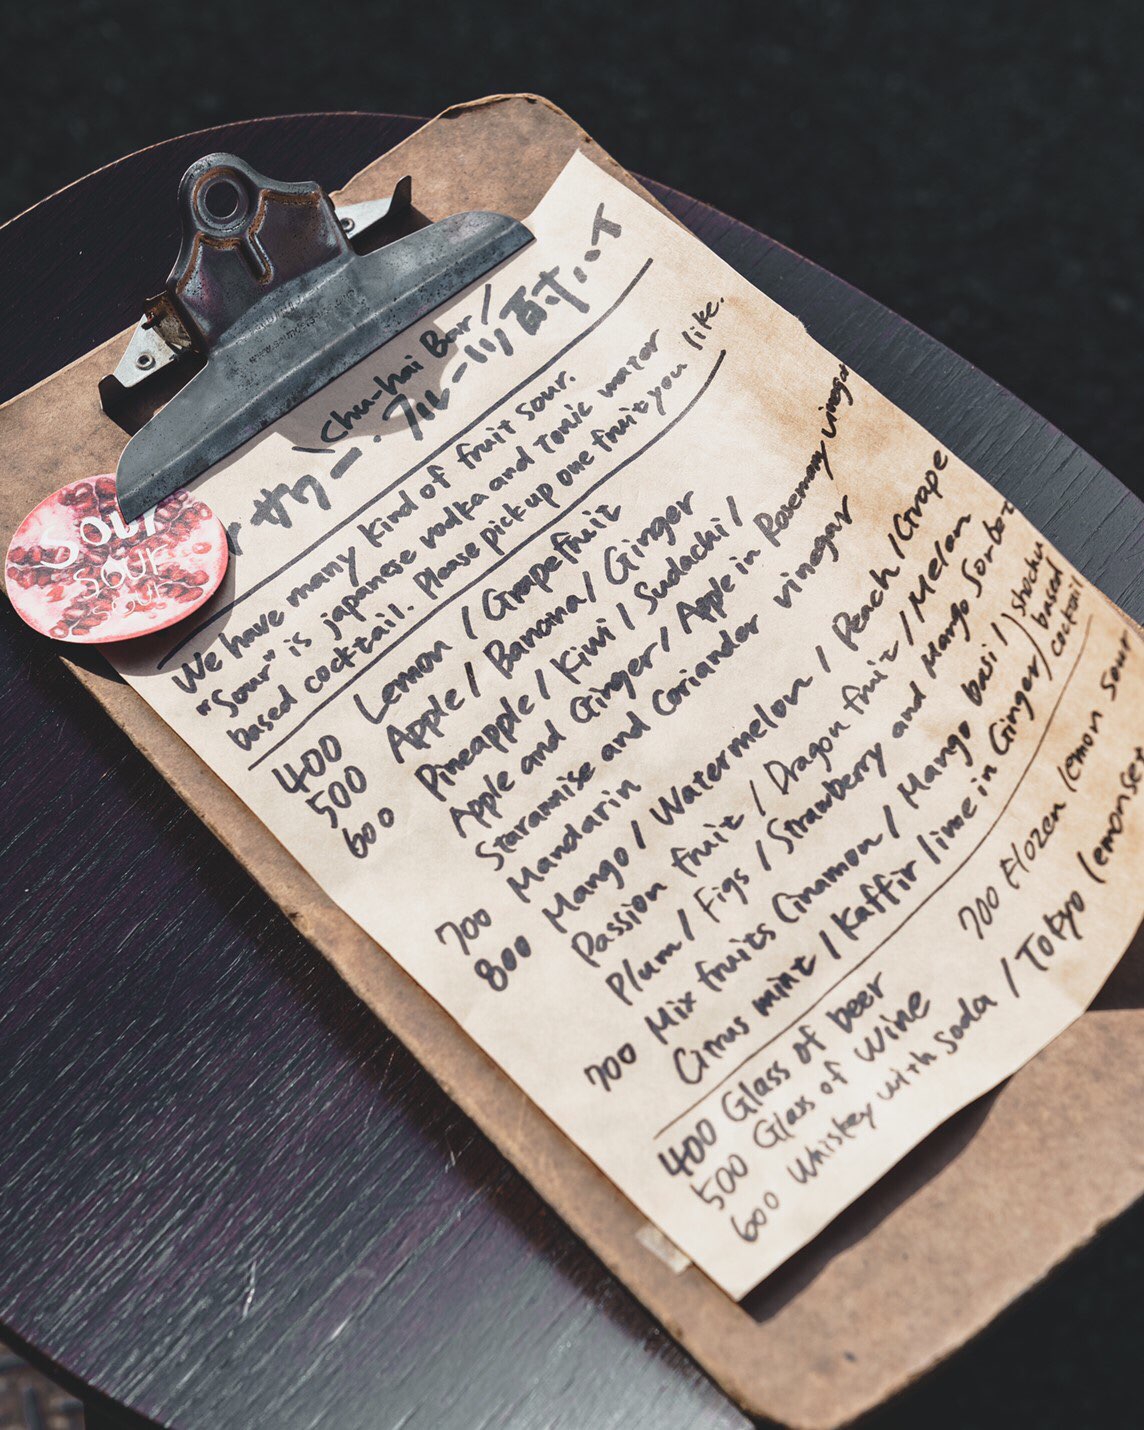 Sour
Sour
Sour
(Chu-hai Bar /
サワー. フルーツ酎ハイ
We have many kind of fruit sour.
"Sour" is japanese vodka and Tonic water
based cocktail. Please pick up one fruit you like.
400 Lemon / Grapefruit
500 Apple / Banana / Ginger
600 Pineapple / Kiwi / Sudachi /
Apple and Ginger / Apple in Rosemary vinegar
Starannise and Coriander vinegar
700 Mandarin
800 Mango / Watermelon / Peach / Grape
Passion fruit / Dragon fruit / Melon
Plum / Figs / Strawberry and Mango Sorbet
700 Mix fruits Cinamon / Mango basi / ) shochu
Citrus mint / Kaffir lime in Ginger ) based
cocktail
700 Flozen lemon sour
400 Glass of beer
500 Glass of wine
600 Whiskey with soda / Tokyo